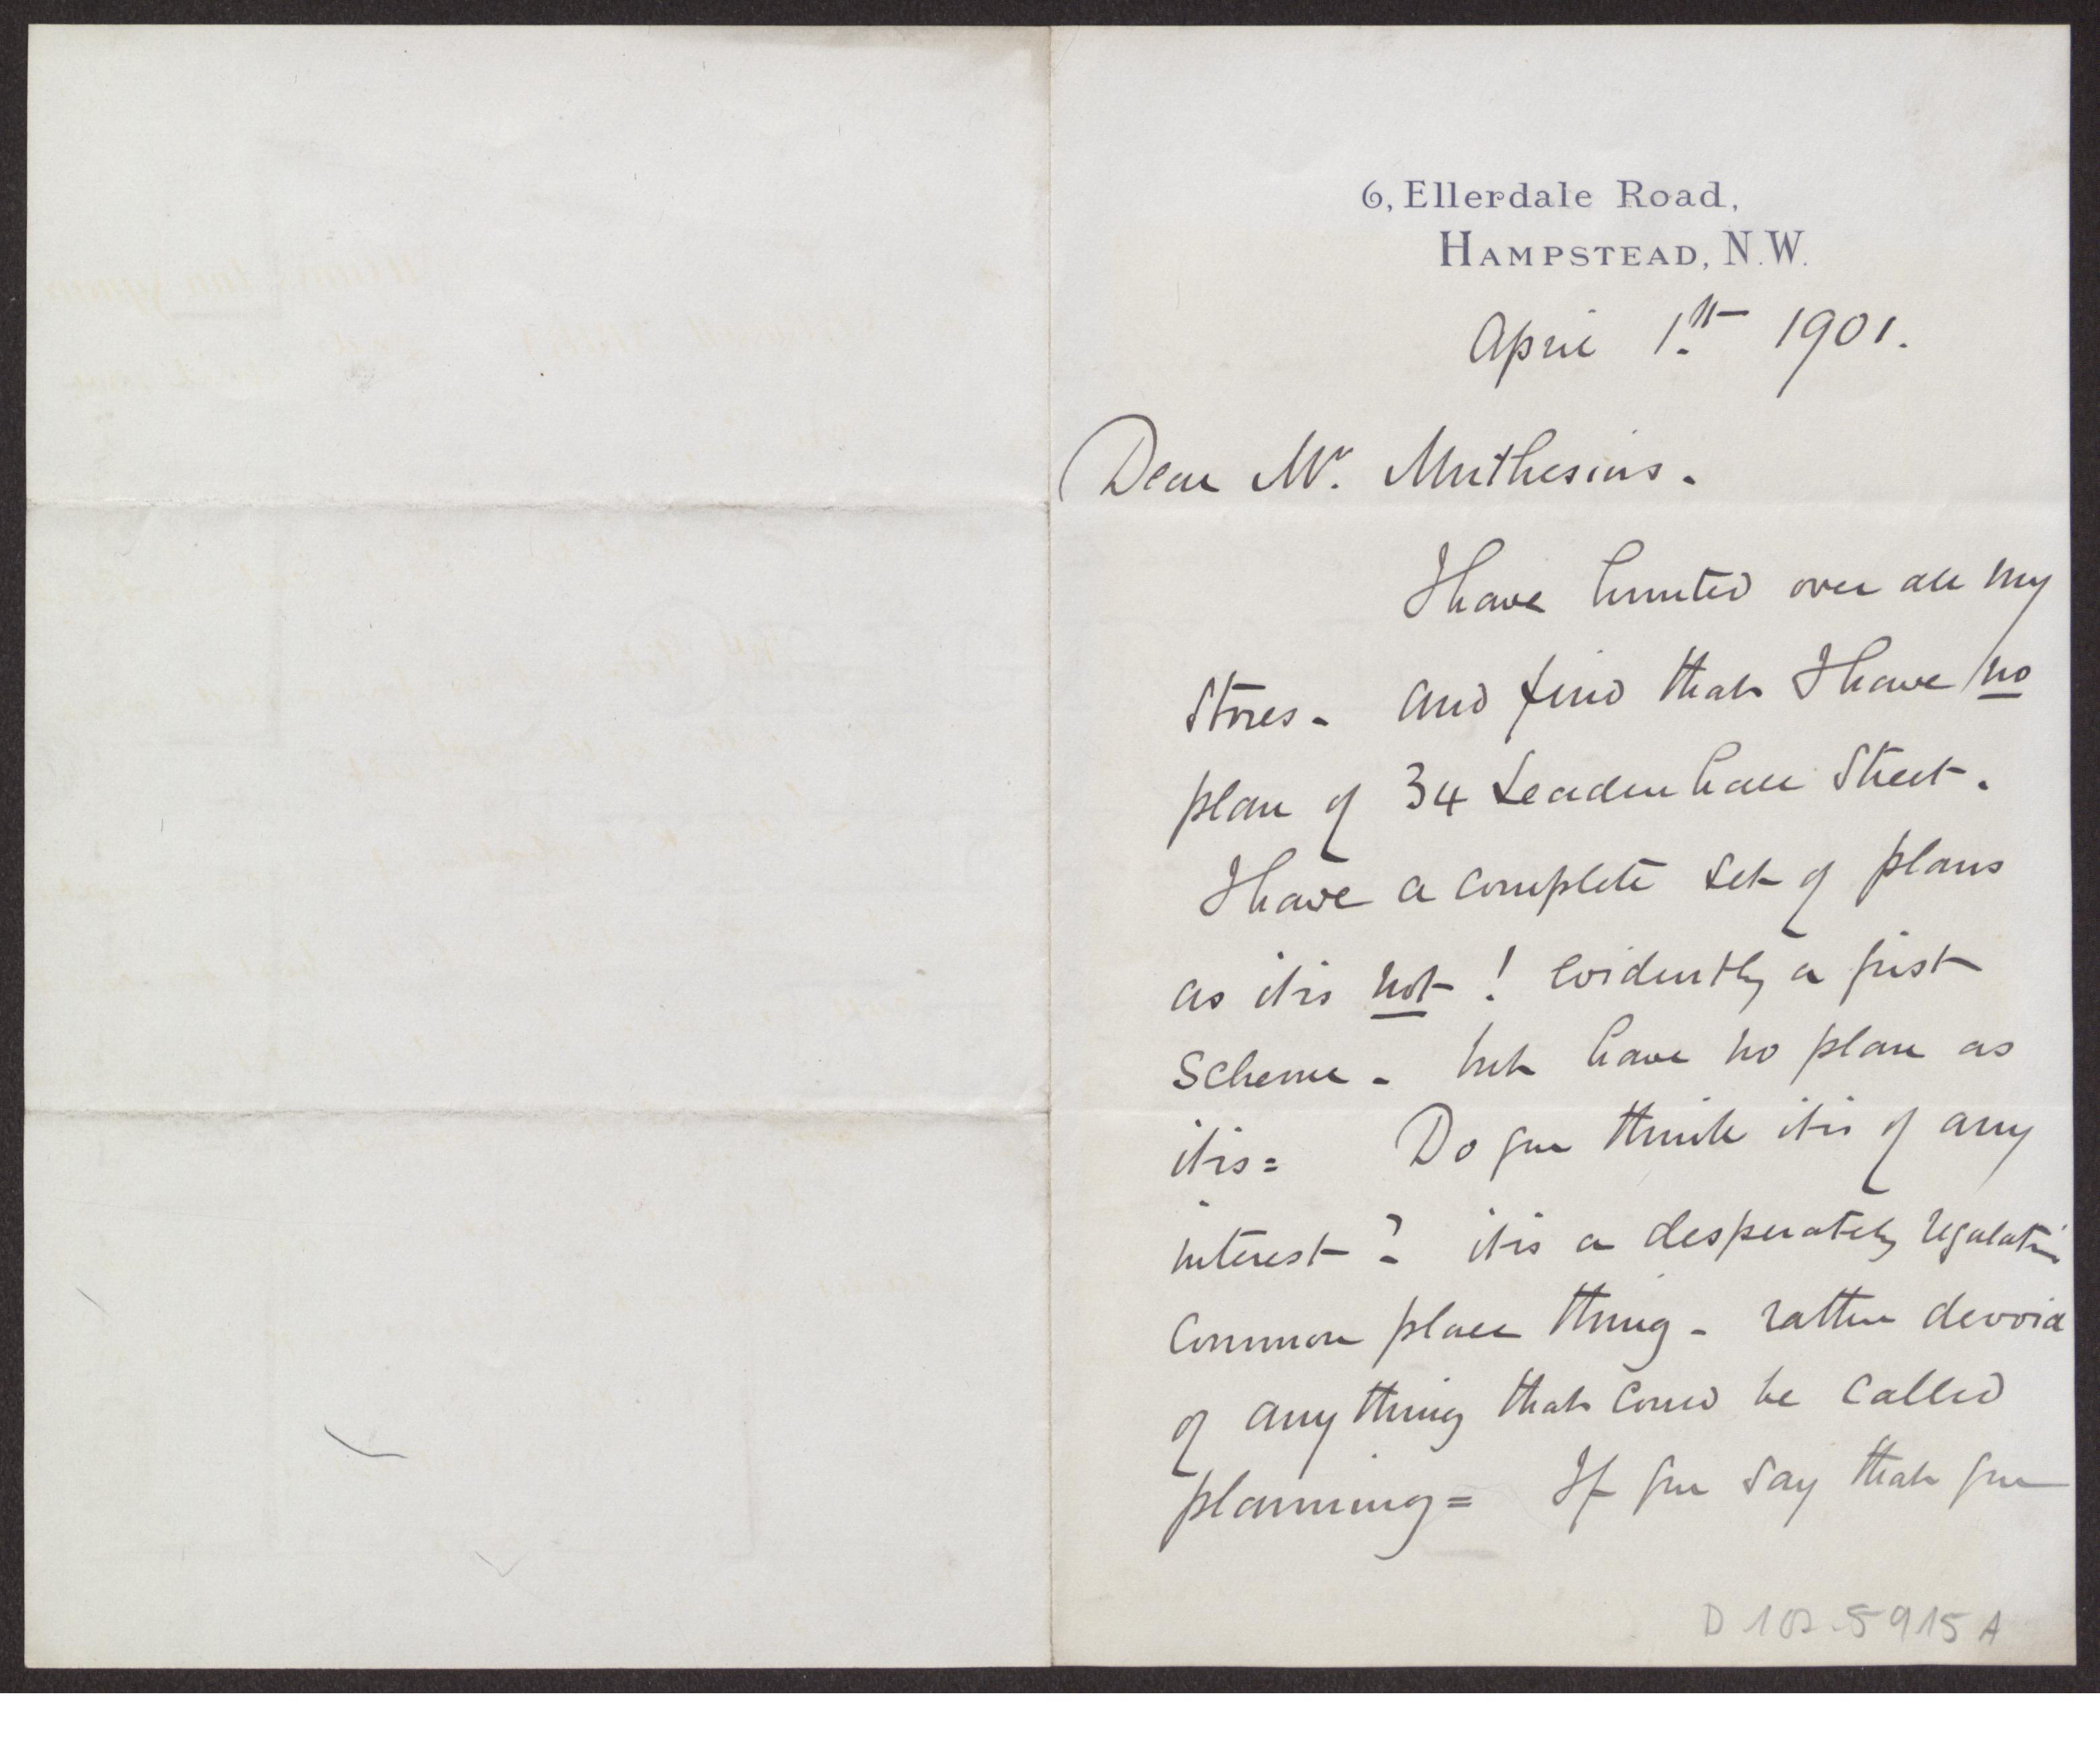 6, Ellerdale Road,
HAMPSTEAD, N.W.
April 1st 1901.
Dear Mr. Muthesius.
I have hunted over all my
stores - and find that I have no
plan of 34 Leadenhall Street.
I have a complete set of plans
as it is not! evidently a first
scheme - but have no plan as
it is = Do you think it is of any
interest? it is a desperately regulation
common place thing - rather devoid
of any thing that could be called
planning = If you say that you
D 102-5915 A